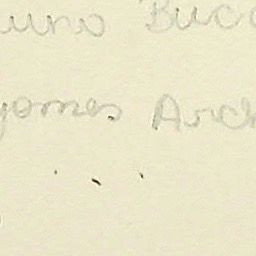 uno Bucc
gomes Arch